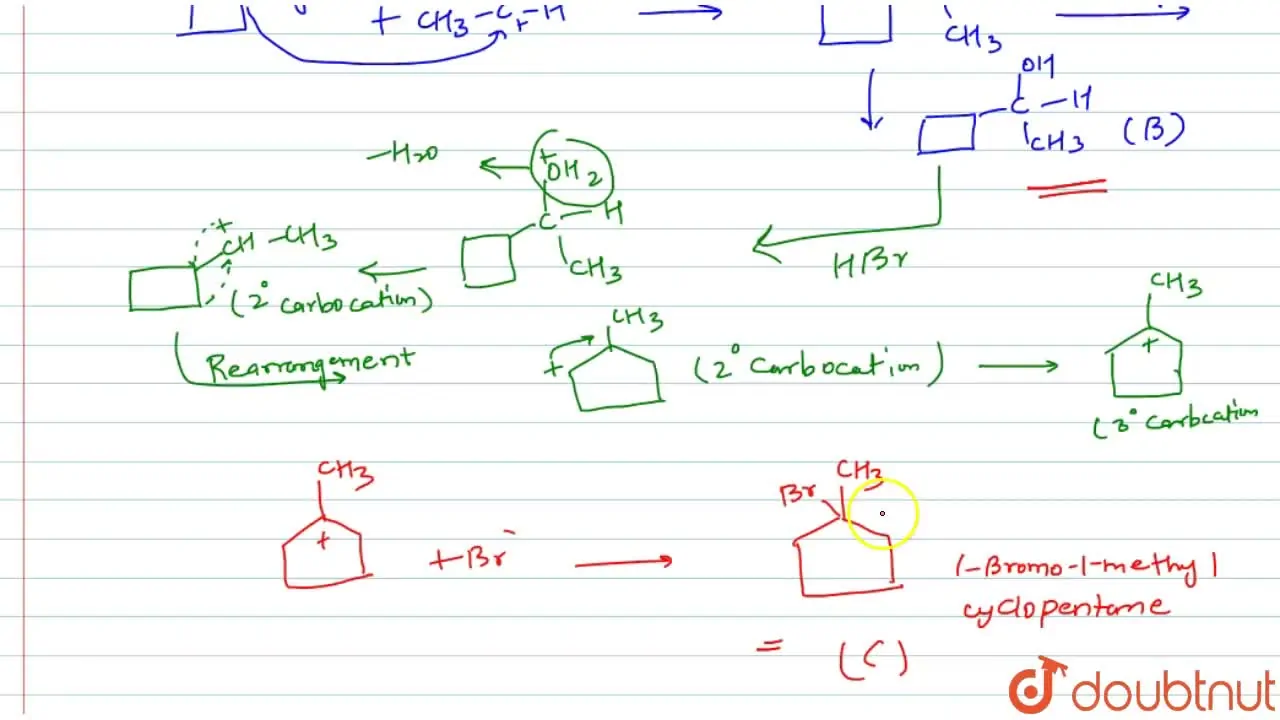 + CH3-C-H
+
CH3
OH
C-H
CH3 (B)
-H2O
+
OH2
C-H
CH3
HBr
+
CH-CH3
(2° carbocation)
Rearrangement
CH3
+
(2° carbocation)
CH3
+
(3° carbcation
CH3
+
+Br-
CH3
Br
1-Bromo-1-methyl
cyclopentane
= (C)
doubtnut